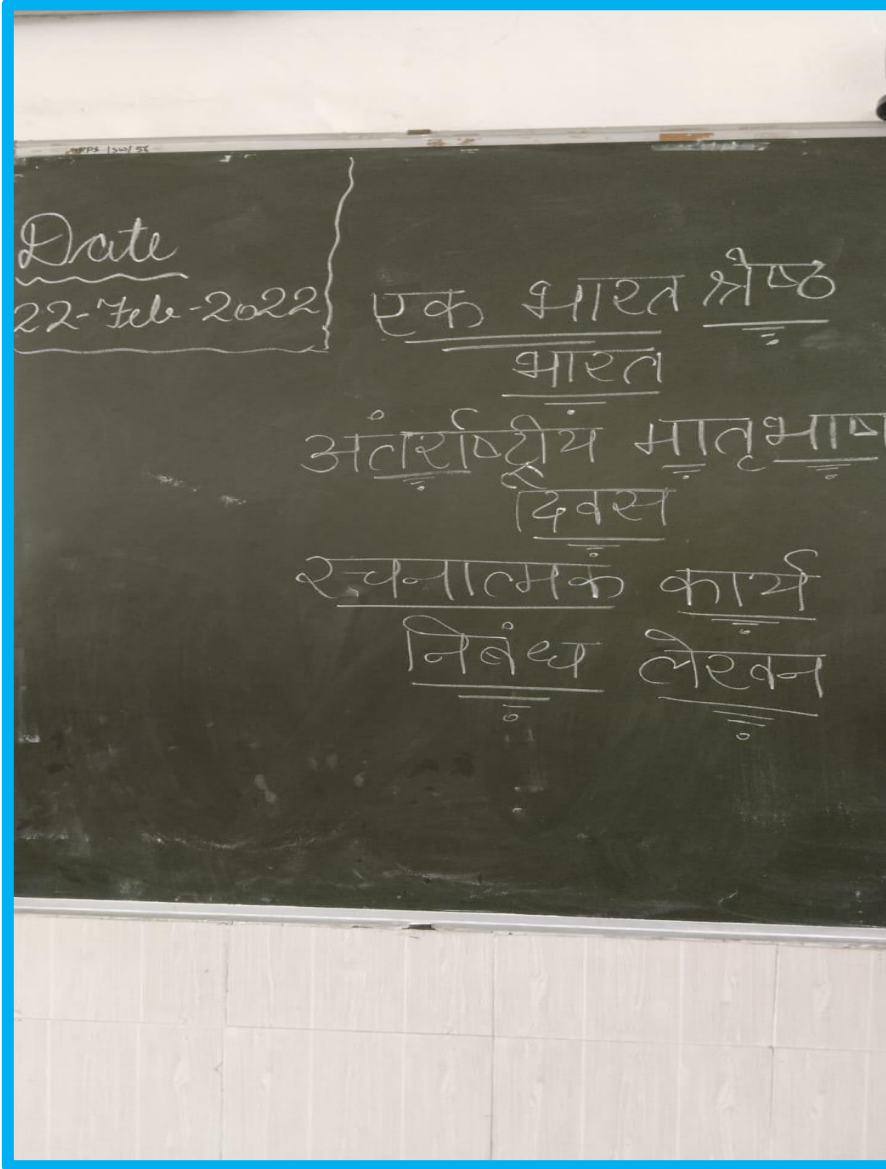 Date
22-Feb-2022
एक भारत श्रेष्ठ
भारत
अंतर्राष्ट्रीय मातृभाष
दिवस
रचनात्मक कार्य
निबंध लेखन